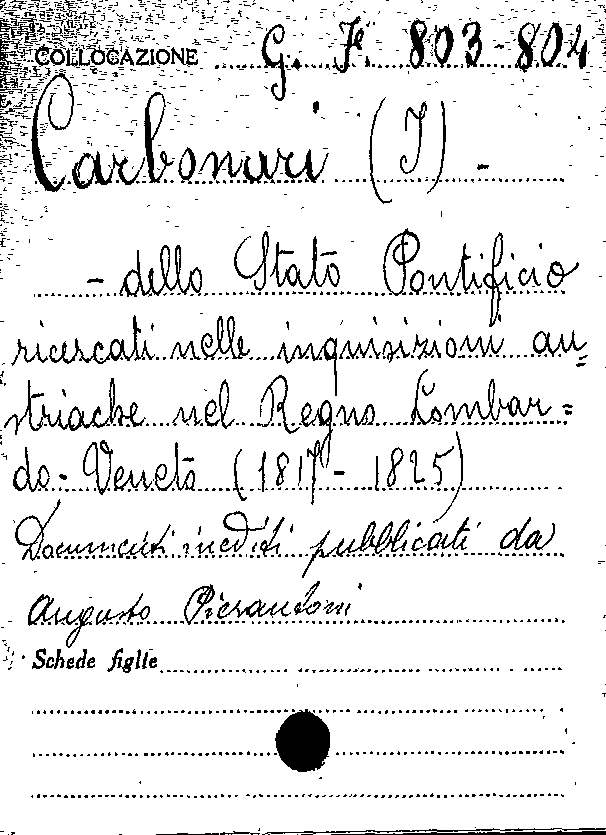 COLLOCAZIONE G. F. 803-804
Carbonari (I) -
- dello Stato Pontificio
ricercati nelle inquisizioni au=
striache nel Regno Lombar=
do-Veneto (1817-1825)
Documenti inediti pubblicati da
Augusto Pierantoni
Schede figlie